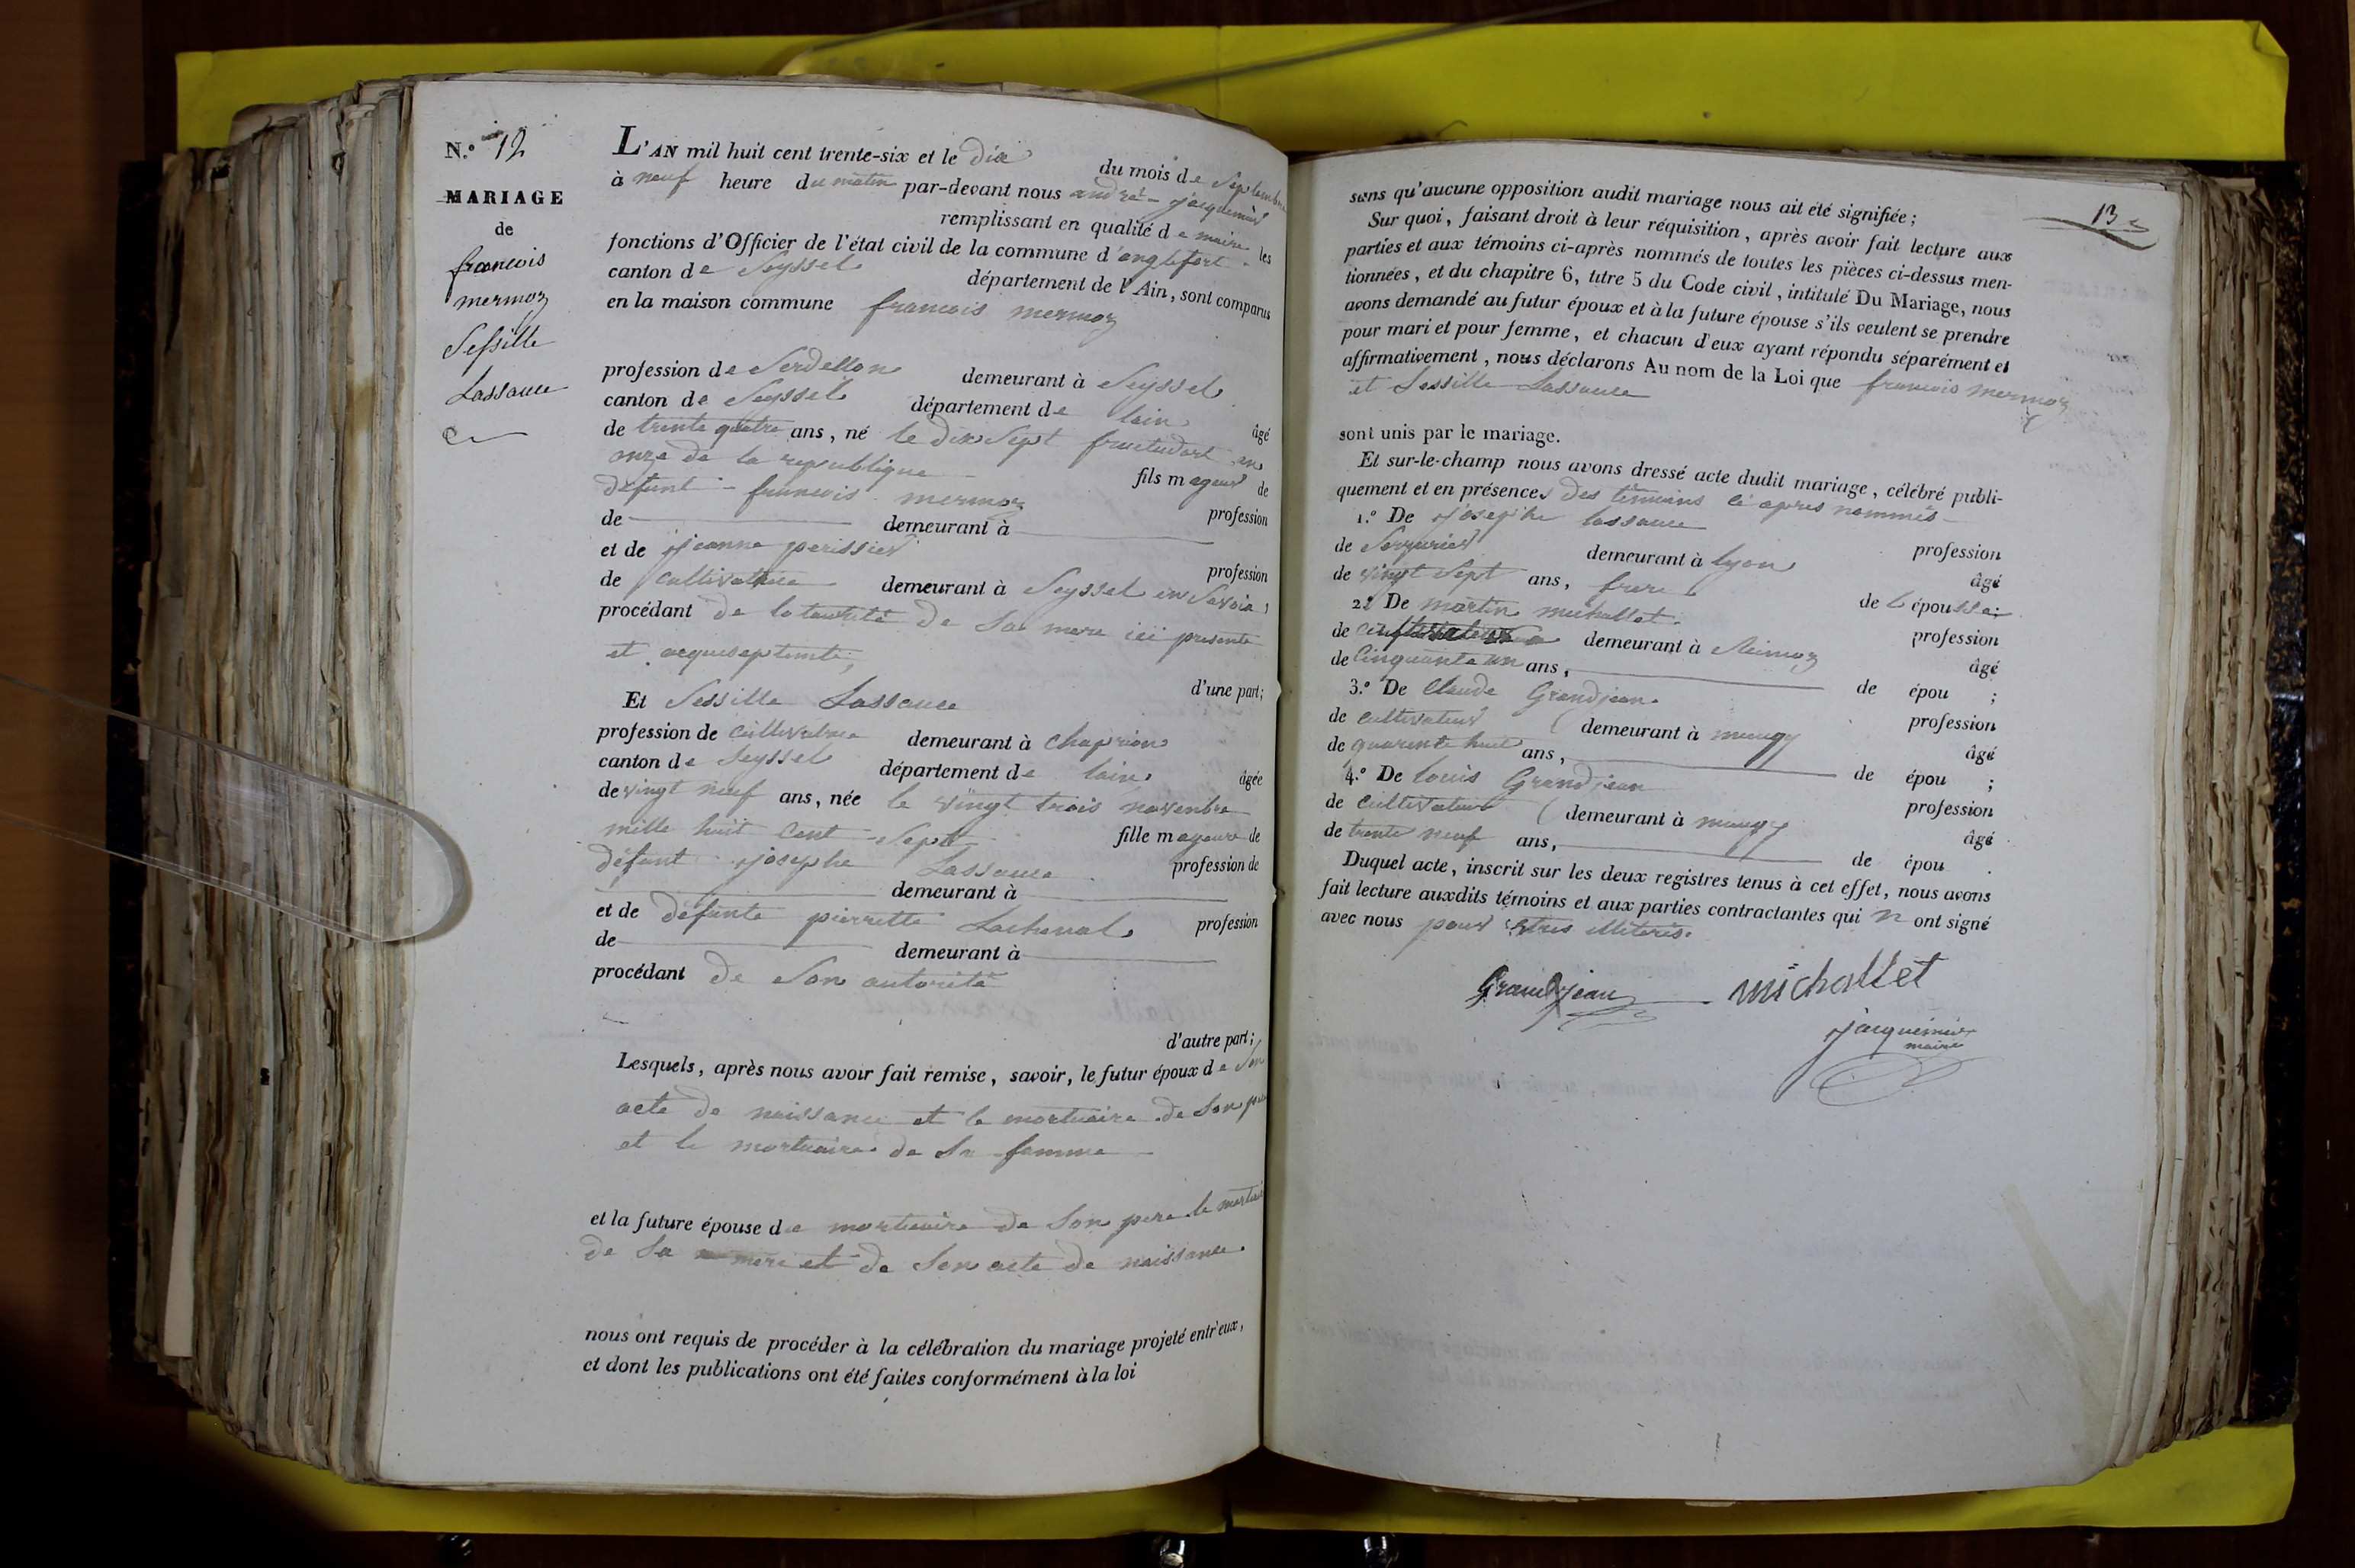 N.° 12
MARIAGE
de
francois
mermoz
Sessille
Lassauce
L'AN mil huit cent trente-six et le dix du mois de Septembre
à neuf heure du matin par-devant nous andré jacquemier
remplissant en qualité de maire les
fonctions d'Officier de l'état civil de la commune d'anglefort
canton de Seyssel département de l'Ain, sont comparus
en la maison commune francois mermoz
profession de demeurant à Seyssel
canton de Seyssel département de lain âgé
de trente quatre ans, né le dix Sept fructudort an
onze de la republique fils mageur de
defunt francois mermoz profession
de demeurant à
et de jeanne perissier profession
de cultivatrice demeurant à Seyssel en Savoie
procédant de lotaurité de Sa mere ici presente
et
d'une part;
Et Sessille Lassauce
profession de cultivatrice demeurant à
canton de Seyssel département de lain âgée
de vingt neuf ans, née le vingt trois novembre
mille huit cent Sept fille mageure de
défunt josephe Lassauce profession de
demeurant à
et de défunte pierrette Lacheval profession
de demeurant à
procédant de Son autorité
d'autre part;
Lesquels, après nous avoir fait remise, savoir, le futur époux de Son
acte de naissance et le mortuaire de Son pere
et le mortuaire de Sa femme
et la future épouse de mortuaire de Son pere le mortuaire
de Sa mere et de Son acte de naissance
nous ont requis de procéder à la célébration du mariage projeté entr'eux,
et dont les publications ont été faites conformément à la loi
13
sans qu'aucune opposition audit mariage nous ait été signifiée;
Sur quoi, faisant droit à leur réquisition, après avoir fait lecture aux
parties et aux témoins ci-après nommés de toutes les pièces ci-dessus men-
tionnées, et du chapitre 6, titre 5 du Code civil, intitulé Du Mariage, nous
avons demandé au futur époux et à la future épouse s'ils veulent se prendre
pour mari et pour femme, et chacun d'eux ayant répondu séparément et
affirmativement, nous déclarons Au nom de la Loi que francois mermoz
et Sessille Lassauce
sont unis par le mariage.
Et sur-le-champ nous avons dressé acte dudit mariage, célébré publi-
quement et en présence des témoins ci apres nommés
1.° De josephe lassauce profession
de Serrurier demeurant à lyon âgé
de vingt Sept ans, frere de l épousse;
2.° De martin michallet profession
de demeurant à âgé
de Cinquante un ans, de épou ;
3.° De Claude Grandjean profession
de cultivateur demeurant à âgé
de quarente huit ans, de épou ;
4.° De louis Grandjean profession
de cultivateur demeurant à âgé
de trente neuf ans, de épou .
Duquel acte, inscrit sur les deux registres tenus à cet effet, nous avons
fait lecture auxdits témoins et aux parties contractantes qui n ont signé
avec nous pour etres illiteris.
Grandjean michallet
jacquemier
maire